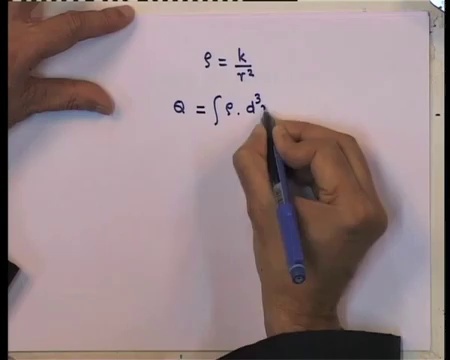 ρ = k/r²
Q = ∫ ρ. d³